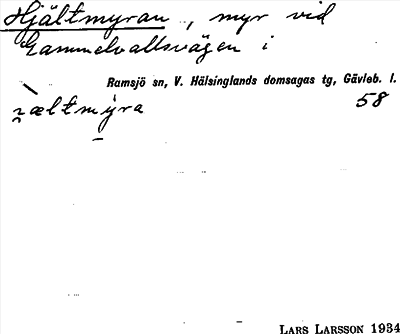 Hjältmyran, myr vid
Gammelvallsvägen i
Ramsjö sn, V. Hälsinglands domsagas tg, Gävleb. l.
58
LARS LARSSON 1934